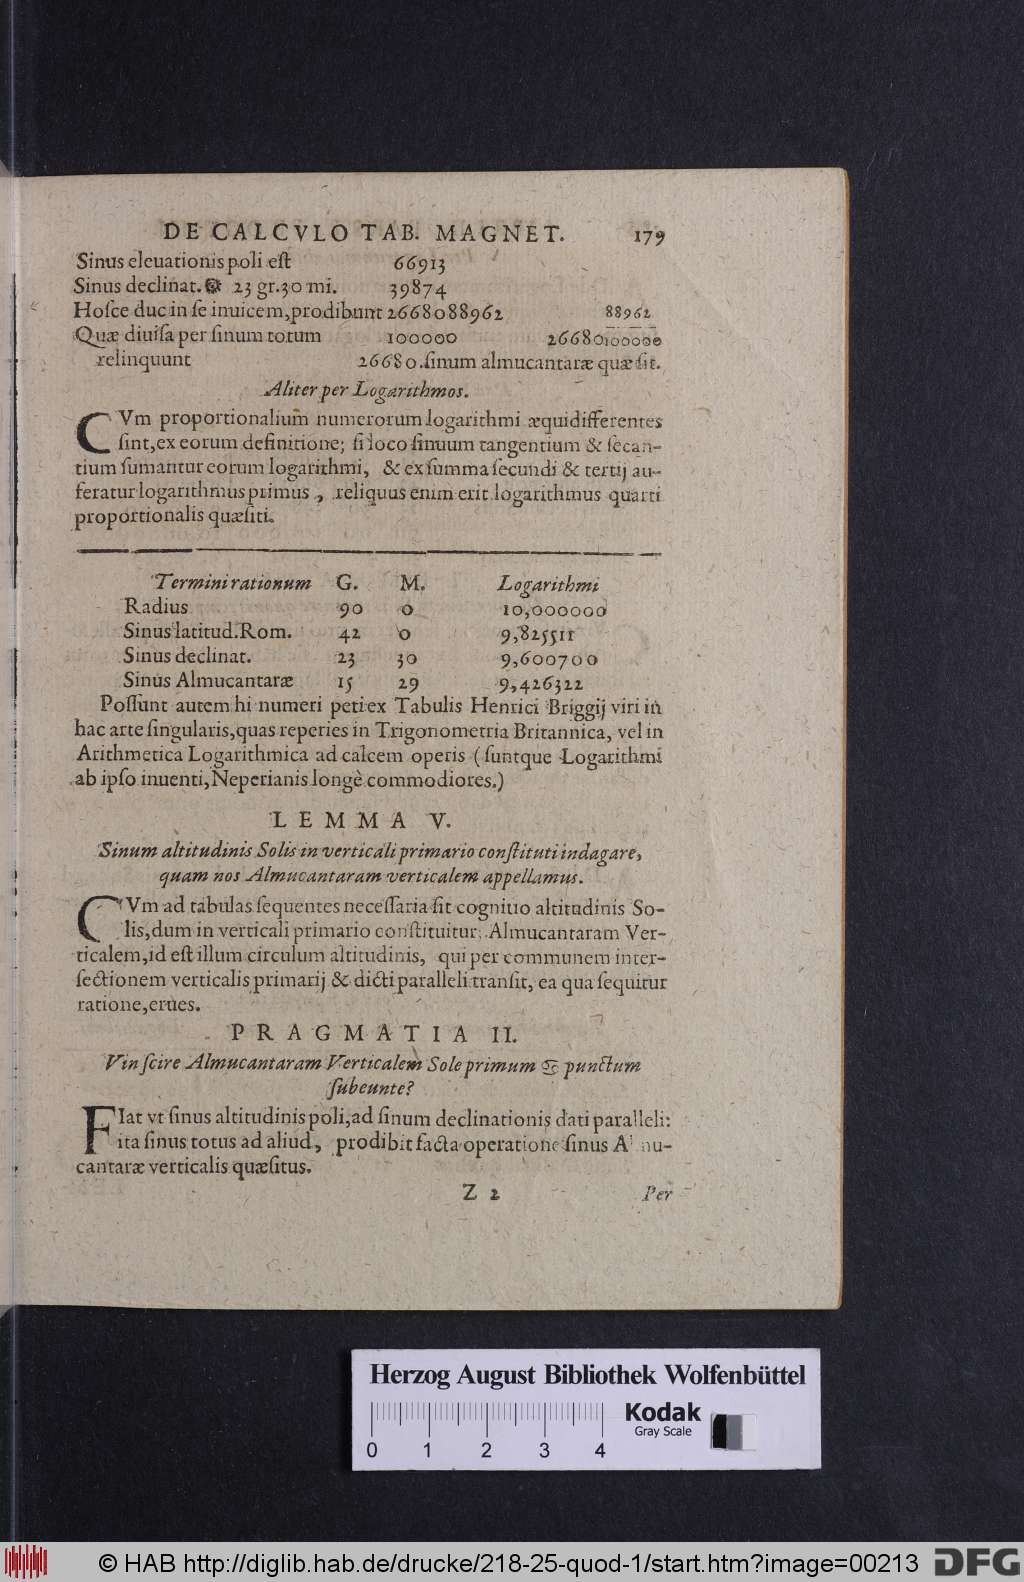 DE CALCVLO TAB. MAGNET. 179
Sinus eleuationis poli est 66913
Sinus declinat. 23 gr.30 mi. 39874
Hosce duc in se inuicem, prodibunt 2668088962 88962
Quæ diuisa per sinum totum 100000 26680100000
relinquunt 26680. sinum almucantaræ quæsit.
Aliter per Logarithmos.
CVm proportionalium numerorum logarithmi æquidifferentes
sint, ex eorum definitione; si loco sinuum tangentium & secan-
tium sumantur eorum logarithmi, & ex summa secundi & tertij au-
feratur logarithmus primus, reliquus enim erit logarithmus quarti
proportionalis quæsiti.
Termini rationum G. M. Logarithmi
Radius 90 0 10,000000
Sinus latitud. Rom. 42 0 9,825511
Sinus declinat. 23 30 9,600700
Sinus Almucantaræ 15 29 9,426322
Possunt autem hi numeri peti ex Tabulis Henrici Briggij viri in
hac arte singularis, quas reperies in Trigonometria Britannica, vel in
Arithmetica Logarithmica ad calcem operis (suntque Logarithmi
ab ipso inuenti, Neperianis longè commodiores.)
LEMMA V.
Sinum altitudinis Solis in verticali primario constituti indagare,
quam nos Almucantaram verticalem appellamus.
CVm ad tabulas sequentes necessaria sit cognitio altitudinis So-
lis, dum in verticali primario constituitur; Almucantaram Ver-
ticalem, id est illum circulum altitudinis, qui per communem inter-
sectionem verticalis primarij & dicti paralleli transit, ea qua sequitur
ratione, erues.
PRAGMATIA II.
Vin scire Almucantaram Verticalem Sole primum ♋ punctum
subeunte?
FIat vt sinus altitudinis poli, ad sinum declinationis dati paralleli:
ita sinus totus ad aliud, prodibit facta operatione sinus Almu-
cantaræ verticalis quæsitus.
Z 2 Per
Herzog August Bibliothek Wolfenbüttel
Kodak
Gray Scale
0 1 2 3 4
© HAB http://diglib.hab.de/drucke/218-25-quod-1/start.htm?image=00213 DFG